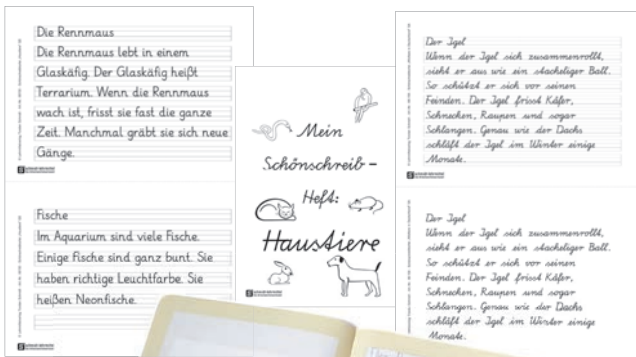 Die Rennmaus
Die Rennmaus lebt in einem
Glaskäfig. Der Glaskäfig heißt
Terrarium. Wenn die Rennmaus
wach ist, frisst sie fast die ganze
Zeit. Manchmal gräbt sie sich neue
Gänge.
Fische
Im Aquarium sind viele Fische.
Einige Fische sind ganz bunt. Sie
haben richtige Leuchtfarbe. Sie
heißen Neonfische.
Mein
Schönschreib-
Heft:
Haustiere
Der Igel
Wenn der Igel sich zusammenrollt,
sieht er aus wie ein stacheliger Ball.
So schützt er sich vor seinen
Feinden. Der Igel frisst Käfer,
Schnecken, Raupen und sogar
Schlangen. Genau wie der Dachs
schläft der Igel im Winter einige
Monate.
Der Igel
Wenn der Igel sich zusammenrollt,
sieht er aus wie ein stacheliger Ball.
So schützt er sich vor seinen
Feinden. Der Igel frisst Käfer,
Schnecken, Raupen und sogar
Schlangen. Genau wie der Dachs
schläft der Igel im Winter einige
Monate.